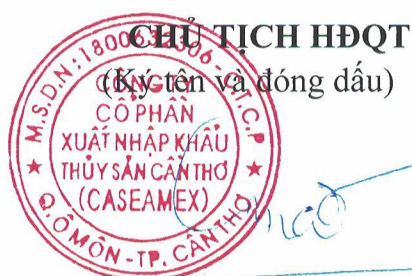 CHỦ TỊCH HĐQT
(Ký tên và đóng dấu)
M.S.D.N: - C.T.C.P
CÔNG
CỔ PHẦN
XUẤT NHẬP KHẨU
THỦY SẢN CẦN THƠ
(CASEAMEX)
Q. Ô MÔN - TP. CẦN THƠ